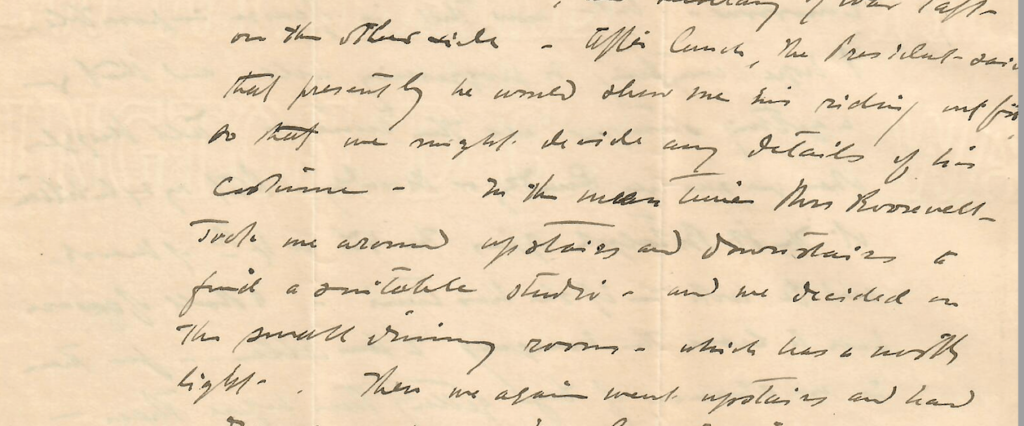 Secretary of War Taft-
on the other side - After lunch, the President said
that presently he would show me his riding outfit
so that we might decide any details of his
costume - In the mean time Mrs Roosevelt-
took me around upstairs and downstairs to
find a suitable studio - and we decided on
the small dining room - which has a north
light - . Then we again went upstairs and had